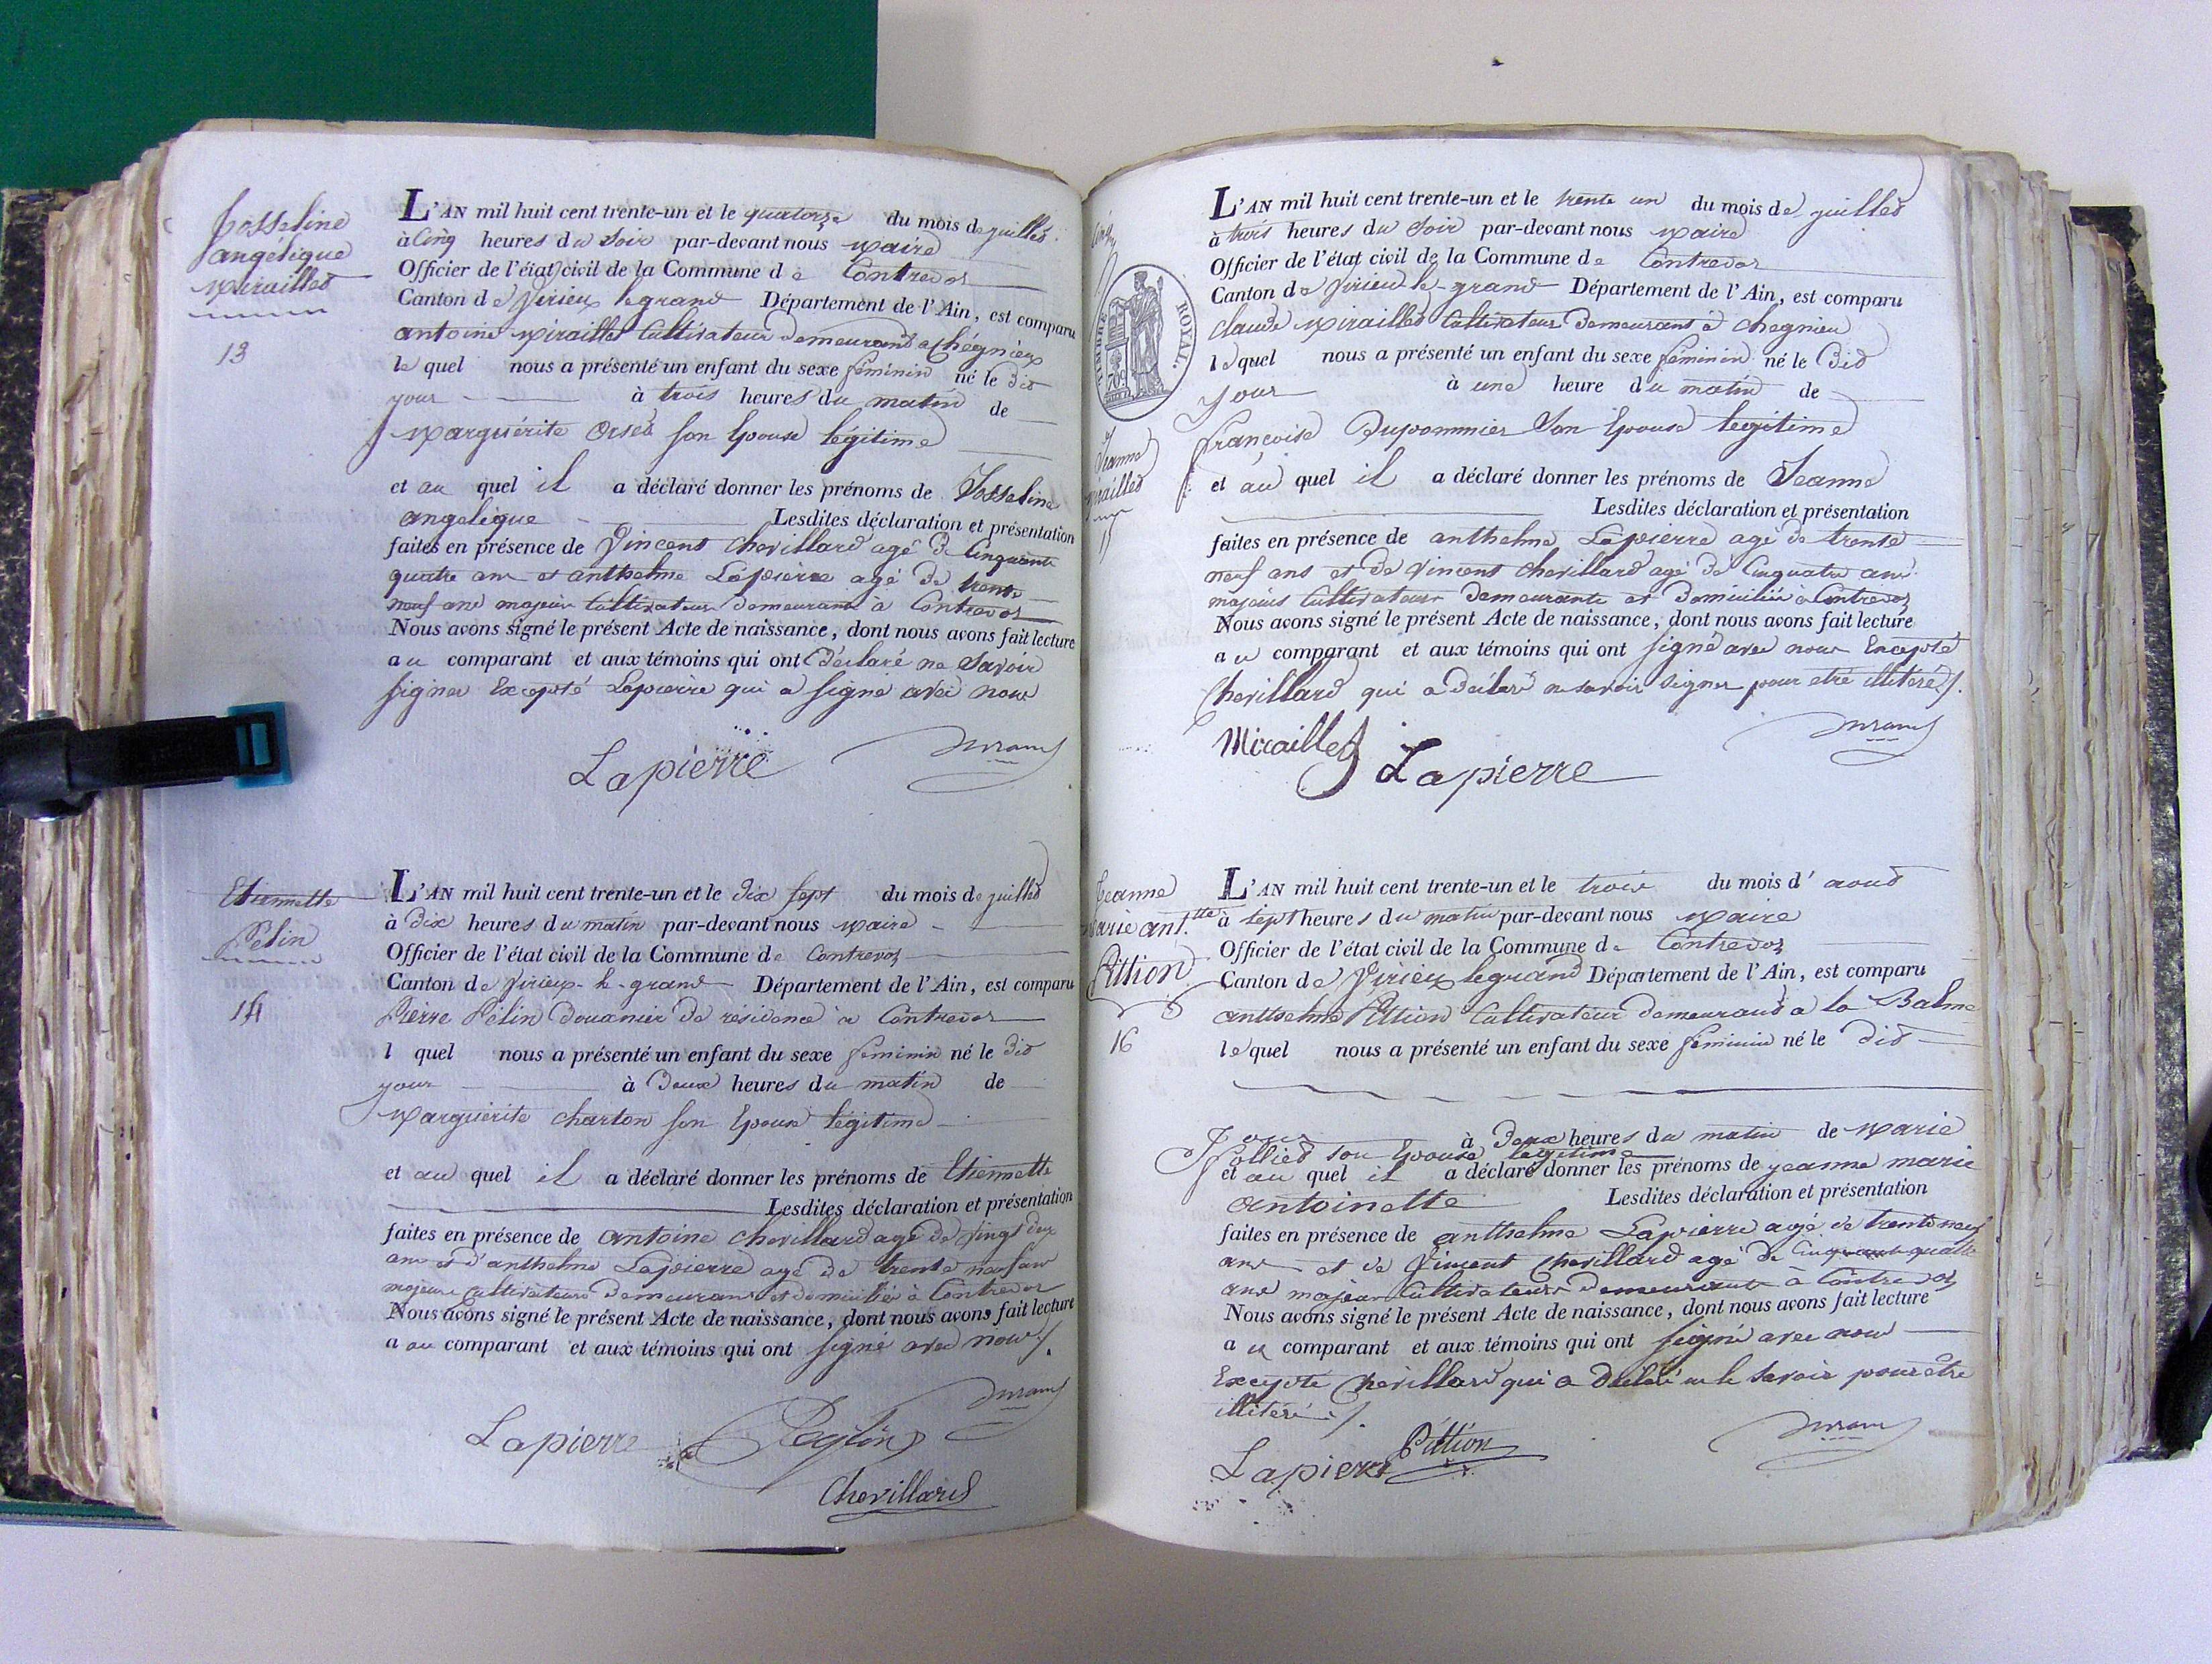 Josseline
angélique
Miraillet
13
L'AN mil huit cent trente-un et le quatorze du mois de juillet
à Cinq heures du Soir par-devant nous Maire
Officier de l'état civil de la Commune de Contrevoz
Canton de Virieux legrand Département de l'Ain, est comparu
antoine Miraillet Cultivateur demeurant a Chégnieux
lequel nous a présenté un enfant du sexe féminin né le dit
jour à trois heures du matin de
Marguérite son Epouse légitime
et au quel il a déclaré donner les prénoms de Josseline
angelique Lesdites déclaration et présentation
faites en présence de Vincent Chevillard agé de Cinquante
quatre ans et anthelme Lapierre agé de trente
neuf ans majeurs Cultivateurs demeurants à Contrevoz
Nous avons signé le présent Acte de naissance, dont nous avons fait lecture
au comparant et aux témoins qui ont déclaré ne Savoir
signer Excepté Lapierre qui a signé avec nous
Lapierre Durand
Etiennette
Pélin
14
L'AN mil huit cent trente-un et le dix sept du mois de juillet
à dix heures du matin par-devant nous Maire
Officier de l'état civil de la Commune de Contrevoz
Canton de Virieux-le-grand Département de l'Ain, est comparu
Pierre Pélin douanier de résidence à Contrevoz
l quel nous a présenté un enfant du sexe féminin né le dit
jour à Deux heures du matin de
Marguérite charton son Epouse légitime
et au quel il a déclaré donner les prénoms de Etiennette
Lesdites déclaration et présentation
faites en présence de antoine Chevillard agé de Vingt deux
ans et d'anthelme Lapierre agé de trente neuf ans
majeurs Cultivateurs demeurans et domiciliés à Contrevoz
Nous avons signé le présent Acte de naissance, dont nous avons fait lecture
a au comparant et aux témoins qui ont signé avec nous ./.
Durand
Lapierre
Chevillard
TIMBRE ROYAL.
70c
Jeanne
Miraillet
15
L'AN mil huit cent trente-un et le trente un du mois de juillet
à trois heures du Soir par-devant nous Maire
Officier de l'état civil de la Commune de Contrevoz
Canton de Virieu-le-grand Département de l'Ain, est comparu
Claude Miraillet Cultivateur demeurant à Chegnieu
lequel nous a présenté un enfant du sexe féminin né le dit
jour à une heure du matin de
françoise Dupommier Son Epouse légitime
et au quel il a déclaré donner les prénoms de Jeanne
Lesdites déclaration et présentation
faites en présence de anthelme Lapierre agé de trente
neuf ans et de Vincent Chevillard agé de Cinquatre ans
majeurs Cultivateurs demeurants et domiciliés a Contrevoz
Nous avons signé le présent Acte de naissance, dont nous avons fait lecture
au comparant et aux témoins qui ont signé avec nous Excepté
Chevillard qui a déclaré ne savoir signer pour etre illitéré ./.
Miraillet Lapierre Durand
Jeanne
Marie ant.tte
Pittion
16
L'AN mil huit cent trente-un et le trois du mois d'aout
à sept heures du matin par-devant nous Maire
Officier de l'état civil de la Commune de Contrevoz
Canton de Virieux legrand Département de l'Ain, est comparu
anthelme Pittion Cultivateur demeurant a la Balme
lequel nous a présenté un enfant du sexe féminin né le dit
Jour à Deux heures du matin de Marie
son Epouse légitime
et au quel il a déclaré donner les prénoms de jeanne marie
antoinette Lesdites déclaration et présentation
faites en présence de anthelme Lapierre agé de trente neuf
ans et de Vincent Chevillard agé de Cinquante quatre
ans majeurs Cultivateurs demeurants à Contrevoz
Nous avons signé le présent Acte de naissance, dont nous avons fait lecture
au comparant et aux témoins qui ont signé avec nous
Excepté Chevillard qui a déclaré ne le savoir pour être
illitéré ./.
Lapierre Pittion Durand